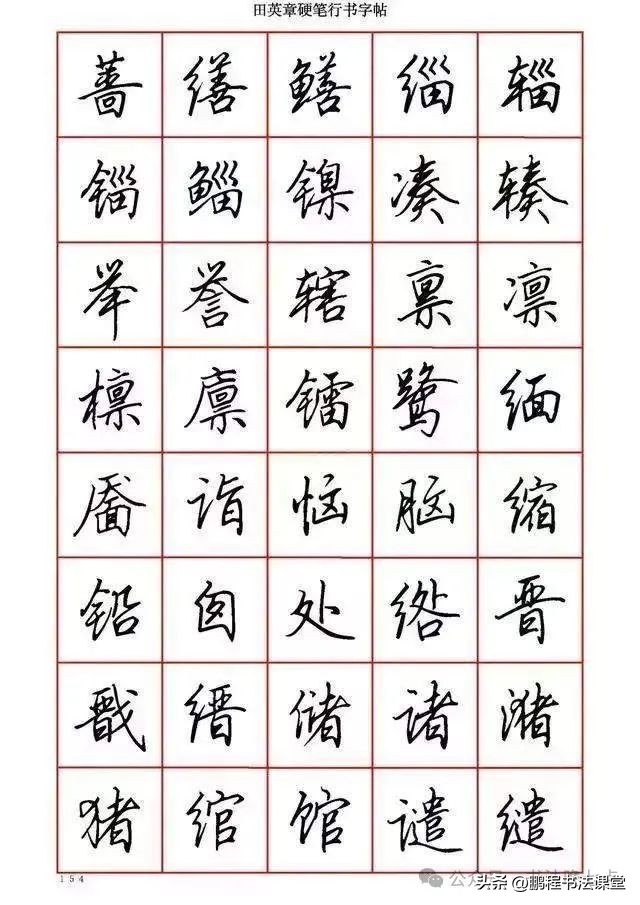 田英章硬笔行书字帖
蔷 缮 鳝 缁 辎
锱 鲻 镍 凑 辏
举 誉 辖 禀 凛
檩 廪 镭 鹭 缅
靥 诣 恼 脑 缩
铅 囱 处 绺 晋
戬 缙 储 诸 潴
猪 绾 馆 谴 缱
154
头条 @鹏程书法课堂